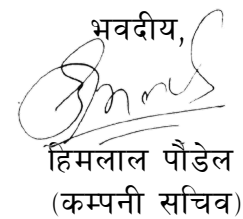 भवदीय,
हिमलाल पौडेल
(कम्पनी सचिव)